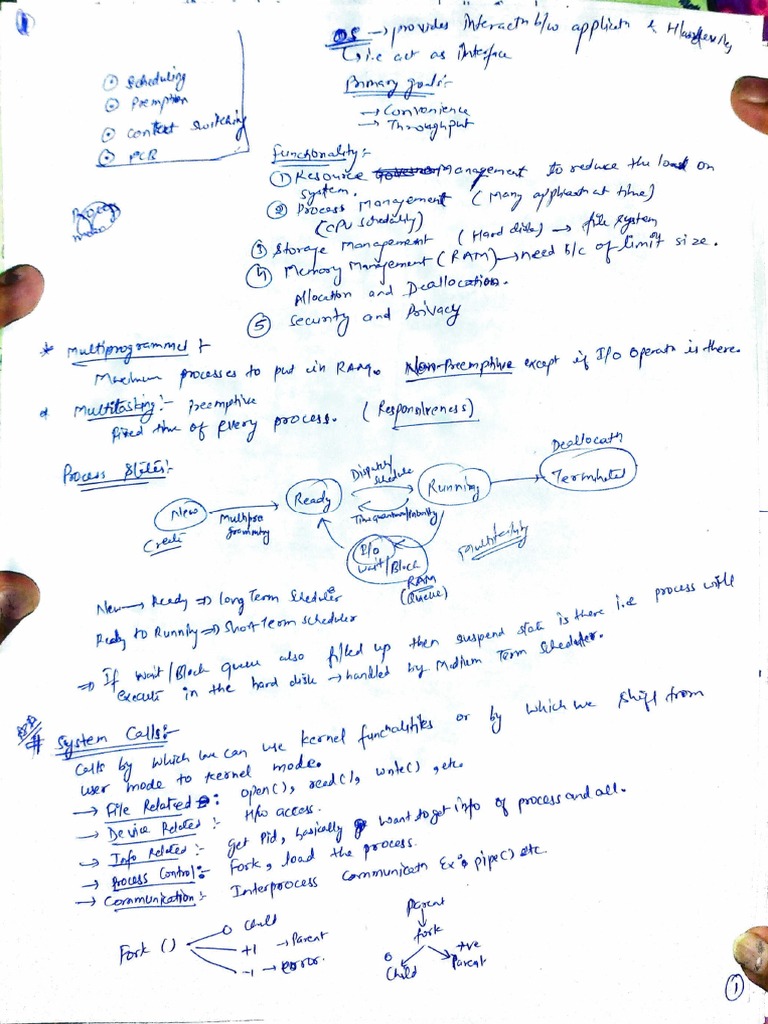 ①
OS → provides interactn b/w applicatn & Hardware
↳ i.e act as interface
Primary goals:-
→ Convenience
→ Throughput
⊙ Scheduling
⊙ Premption
⊙ Context Switching
⊙ PCB
Functionality:-
① Resource Management to reduce the load on
system.
② Process Management (Many applicatn at time)
(CPU scheduling)
③ Storage Management (Hard disk) → file system
④ Memory Management (RAM) → need b/c of limit size.
Allocation and Deallocation.
⑤ Security and Privacy
* Multiprogrammed :-
Maximum processes to put in RAM. Non-Preemptive except if I/O Operatn is there.
* Multitasking:- Preemptive
Fixed time of every process. (Responsiveness)
Process States:-
Deallocatn
New
Create
Multipro
gramming
Ready
Dispatch/
schedule
Time quantum/Priority
Running
Terminated
I/O
wait/Block
RAM
(Queue)
Multitasking
New → Ready ⇒ Long Term Scheduler
Ready to Running ⇒ Short Term Scheduler
⇒ If Wait/Block queue also filled up then suspend state is there i.e process will
execute in the hard disk → handled by Medium Term Scheduler.
# System Calls:-
Calls by which we can use kernel functionalities or by which we shift from
user mode to kernel mode.
→ File Related : open(), read(), write(), etc.
→ Device Related :- H/w access.
→ Info Related :- get Pid, basically want to get info of process and all.
→ Process Control :- Fork, load the process.
→ Communication :- Interprocess Communicatn Ex: pipe() etc.
Fork ()
0 Child
+1 → Parent
-1 → error.
Parent
fork
0
Child
+ve
Parent
①